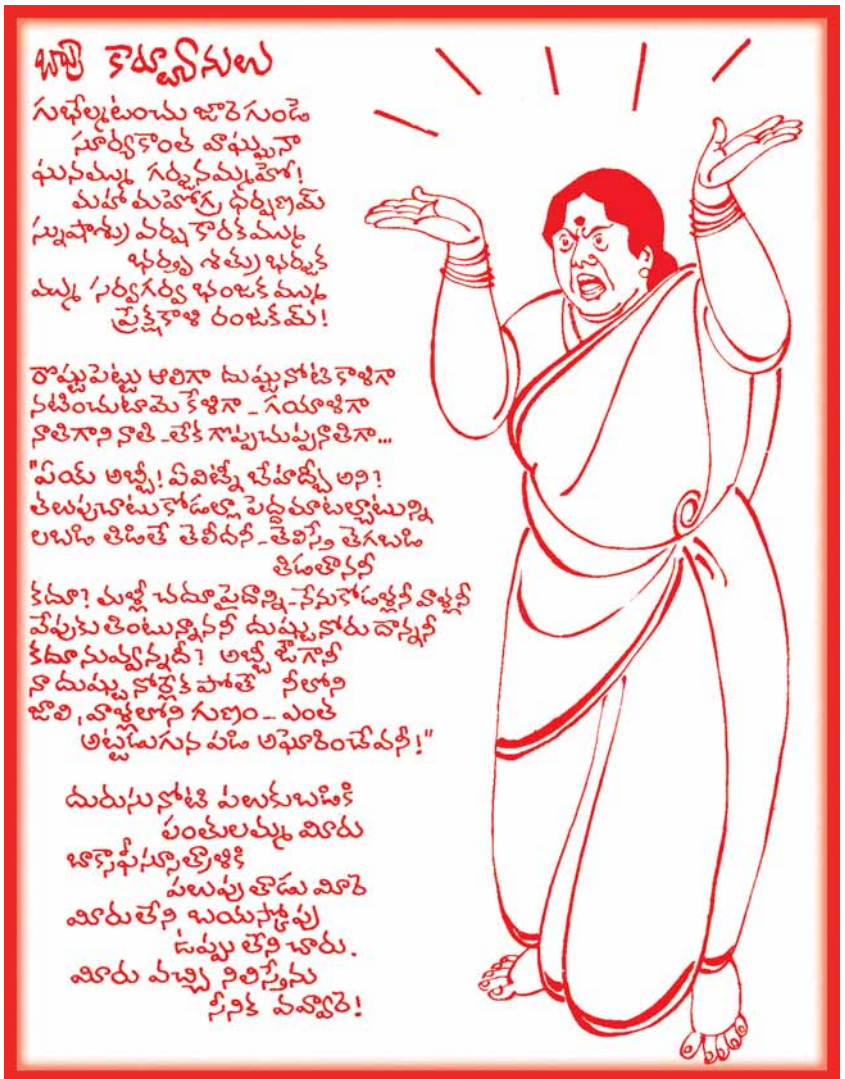 బాపు కార్టూనులు
గుభేల్మటంచు జారె గుండె
సూర్యకాంత వాఘ్ఘనా
ఘనమ్ము గర్జనమ్మహో!
మహా మహోగ్ర ధర్షణమ్
స్నుషాశ్రు వర్ష కారకమ్ము
భర్తృ శత్రు భర్జక
మ్ము సర్వగర్వ భంజకమ్ము
ప్రేక్షకాళి రంజకమ్!
రొష్టుపెట్టు ఆలిగా దుష్టునోటి కాళిగా
నటించుటామె కేళిగా - గయాళిగా
నాతిగాని నాతి - లేక గొప్పచుప్పనాతిగా...
"ఏయ్ అబ్బీ! ఏవిట్నీ బేహద్బీ అని?
తలుపుచాటు కోడల్లా పెద్దమాటల్చాటున్ని
లబడి తిడితే తెలీదనీ - తెలిస్తే తెగబడి
తిడతాననీ
కదూ? మళ్లీ చదూ పైదాన్ని - నేనుకోడళ్లనీ వాళ్లనీ
వేపుకుతింటున్నాననీ దుష్టునోరు దాన్ననీ
కదూ నువ్వన్నదీ? అబ్బీ ఔగానీ
నా దుష్టు నోర్లేక పోతే నీలోని
జాలి, వాళ్లలోని గుణం - ఎంత
అట్టడుగున పడి అఘోరించేవనీ!"
దురుసు నోటి పలుకుబడికి
పంతులమ్మ మీరు
బాక్సాఫీస్సూత్రాళికి
పలుపు తాడు మీరె
మీరులేని బయస్కోపు
ఉప్పు లేని చారు.
మీరు వచ్చి నిలిస్తేను
సీనిక వవ్వారె!